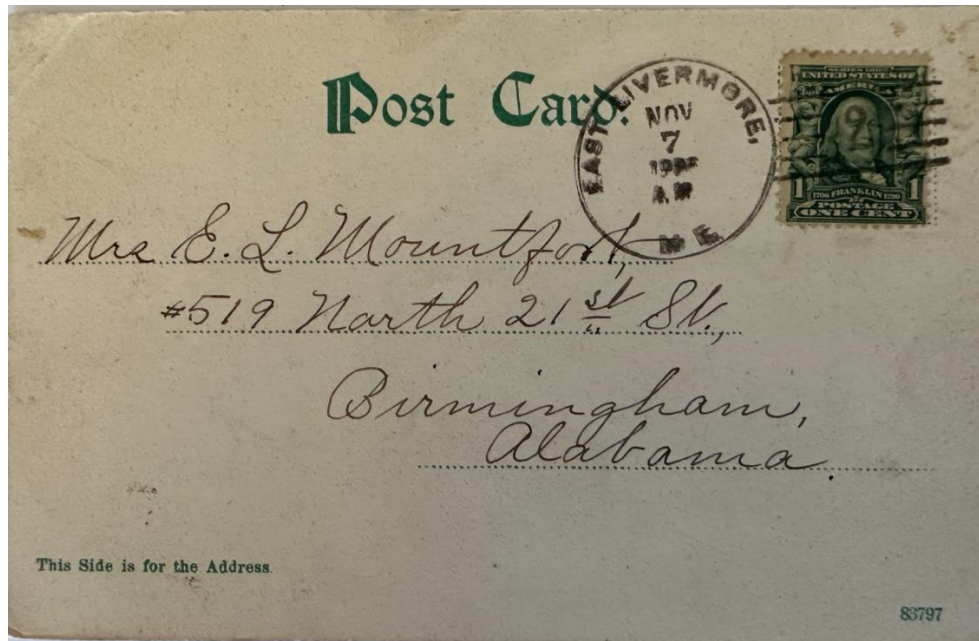 Post Card.
EAST LIVERMORE,
NOV
7
A.M
M E.
SERIES 1902
UNITED STATES OF
AMERICA
1 1706 FRANKLIN 1790 1
POSTAGE
ONE CENT
Mrs E. L. Mountfort,
#519 North 21st St.,
Birmingham,
Alabama.
This Side is for the Address.
83797